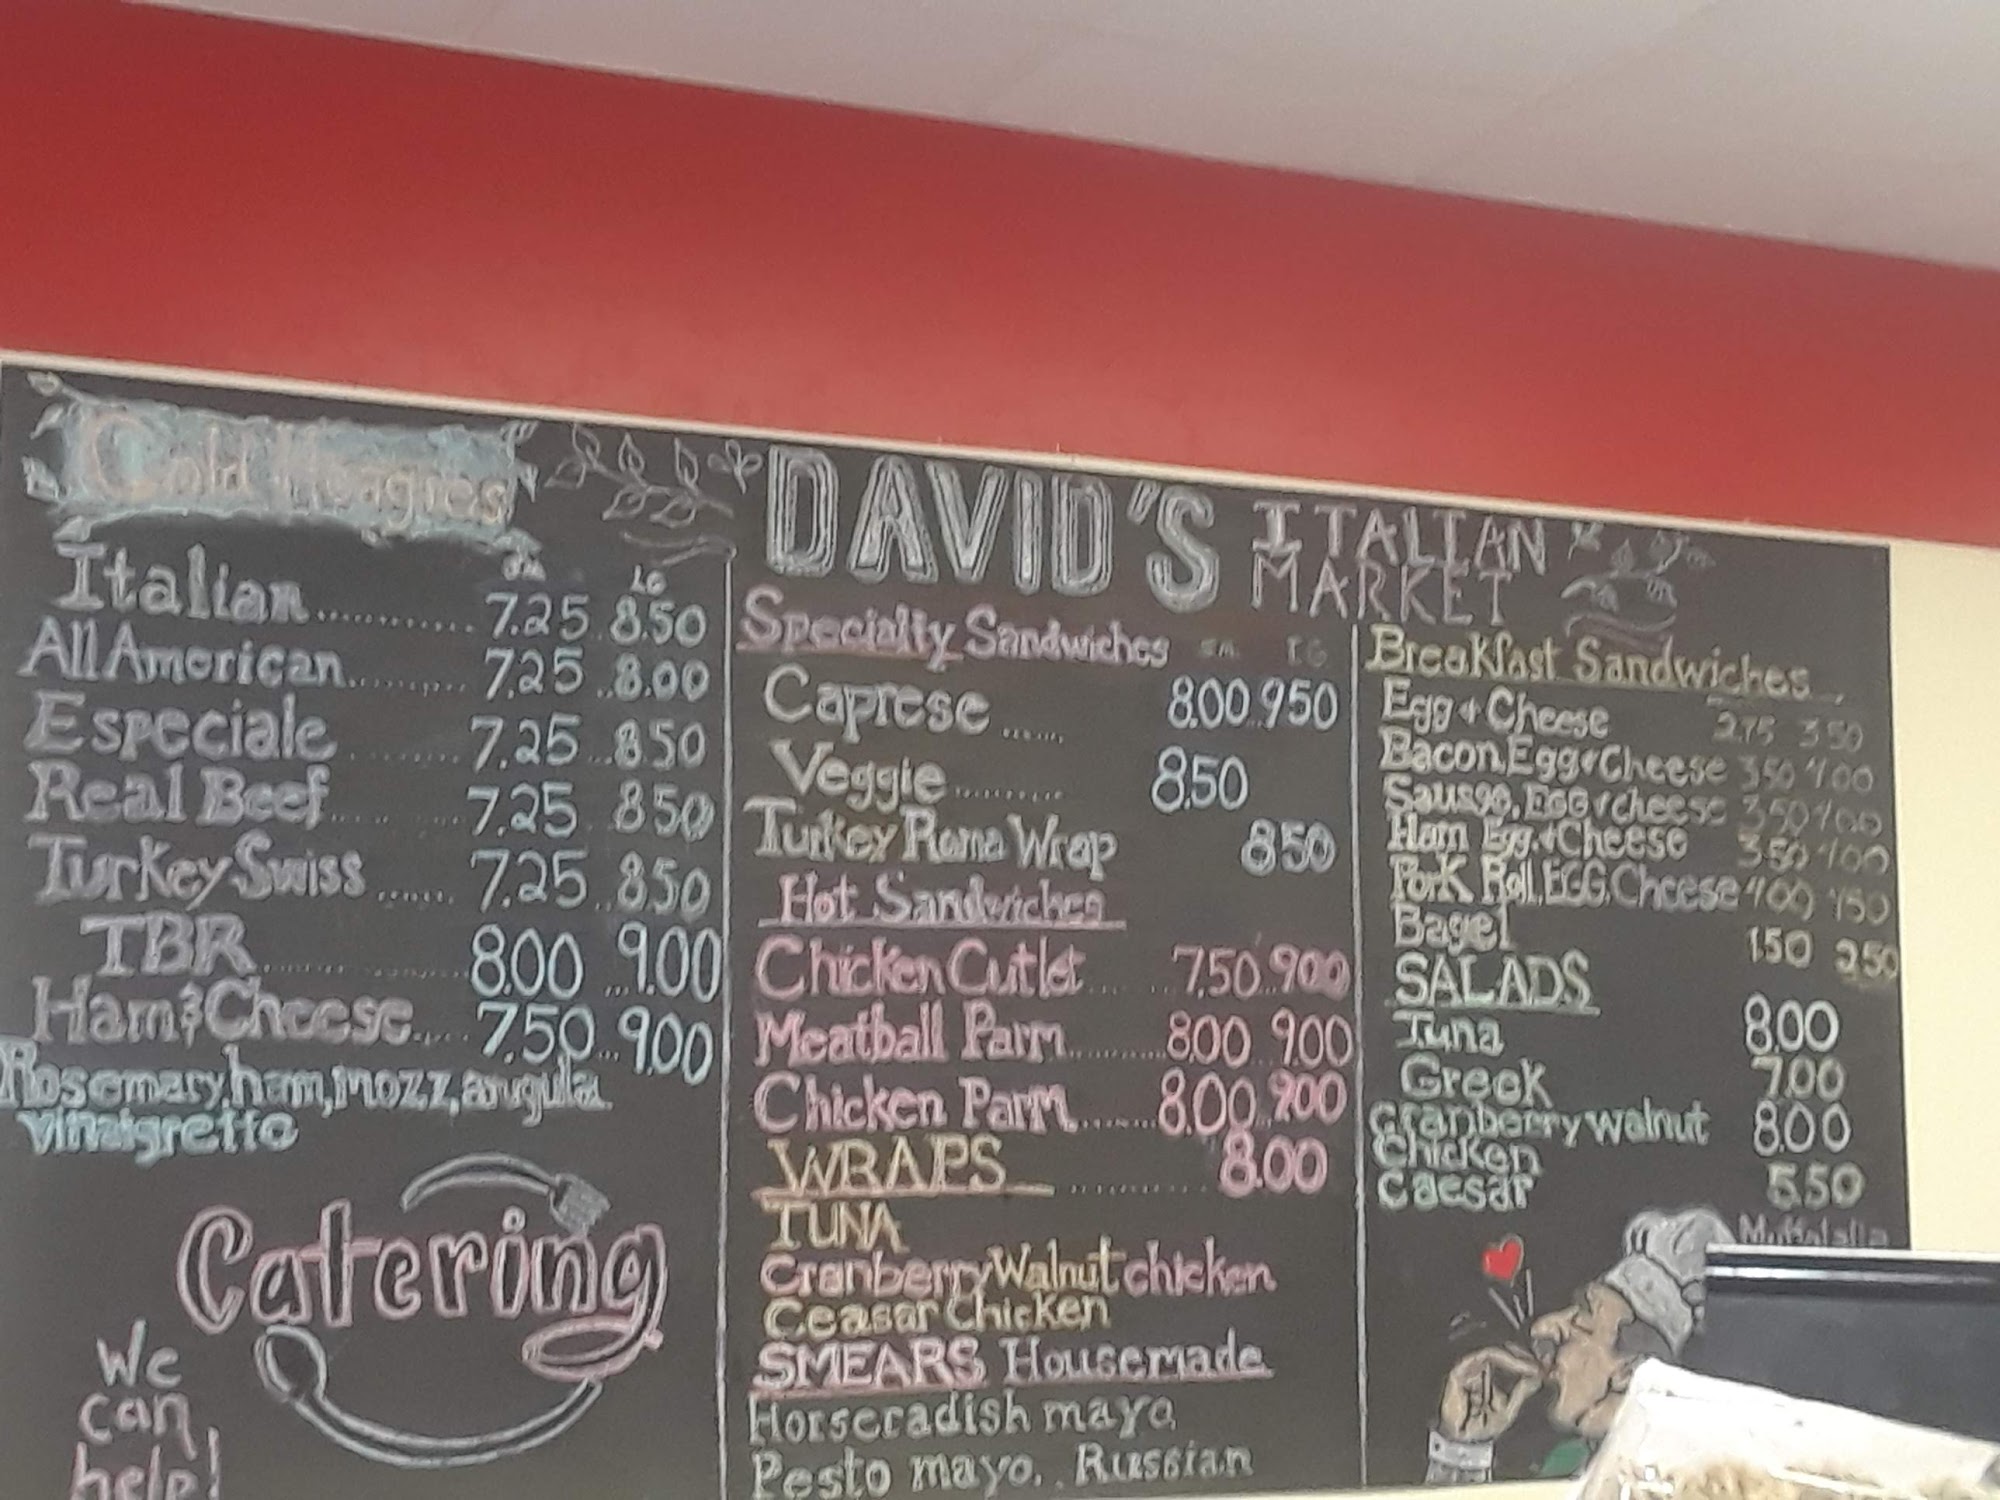 Cold Hoagies
Sm LG
Italian 7.25 8.50
All American 7.25 8.00
Especiale 7.25 8.50
Real Beef 7.25 8.50
Turkey Swiss 7.25 8.50
TBR 8.00 9.00
Ham & Cheese 7.50 9.00
Rosemary, ham, mozz, arugula
vinaigrette
Catering
We
can
help!
DAVID'S ITALIAN
MARKET
Specialty Sandwiches SM LG
Caprese 8.00 950
Veggie 8.50
Turkey Roma Wrap 850
Hot Sandwiches
Chicken Cutlet 7.50 900
Meatball Parm 8.00 9.00
Chicken Parm 8.00 900
WRAPS 8.00
TUNA
Cranberry Walnut chicken
Ceasar Chicken
SMEARS Housemade
Horseradish mayo
Pesto mayo. Russian
Breakfast Sandwiches
Egg + Cheese 2.75 3.50
Bacon, Egg + Cheese 3.50 4.00
Egg + cheese 3.50 4.00
Ham Egg + Cheese 3.50 4.00
Pork Roll, EGG, Cheese 400 450
Bagel 1.50 2.50
SALADS
Tuna 8.00
Greek 7.00
Cranberry walnut 8.00
Chicken
Caesar 5.50